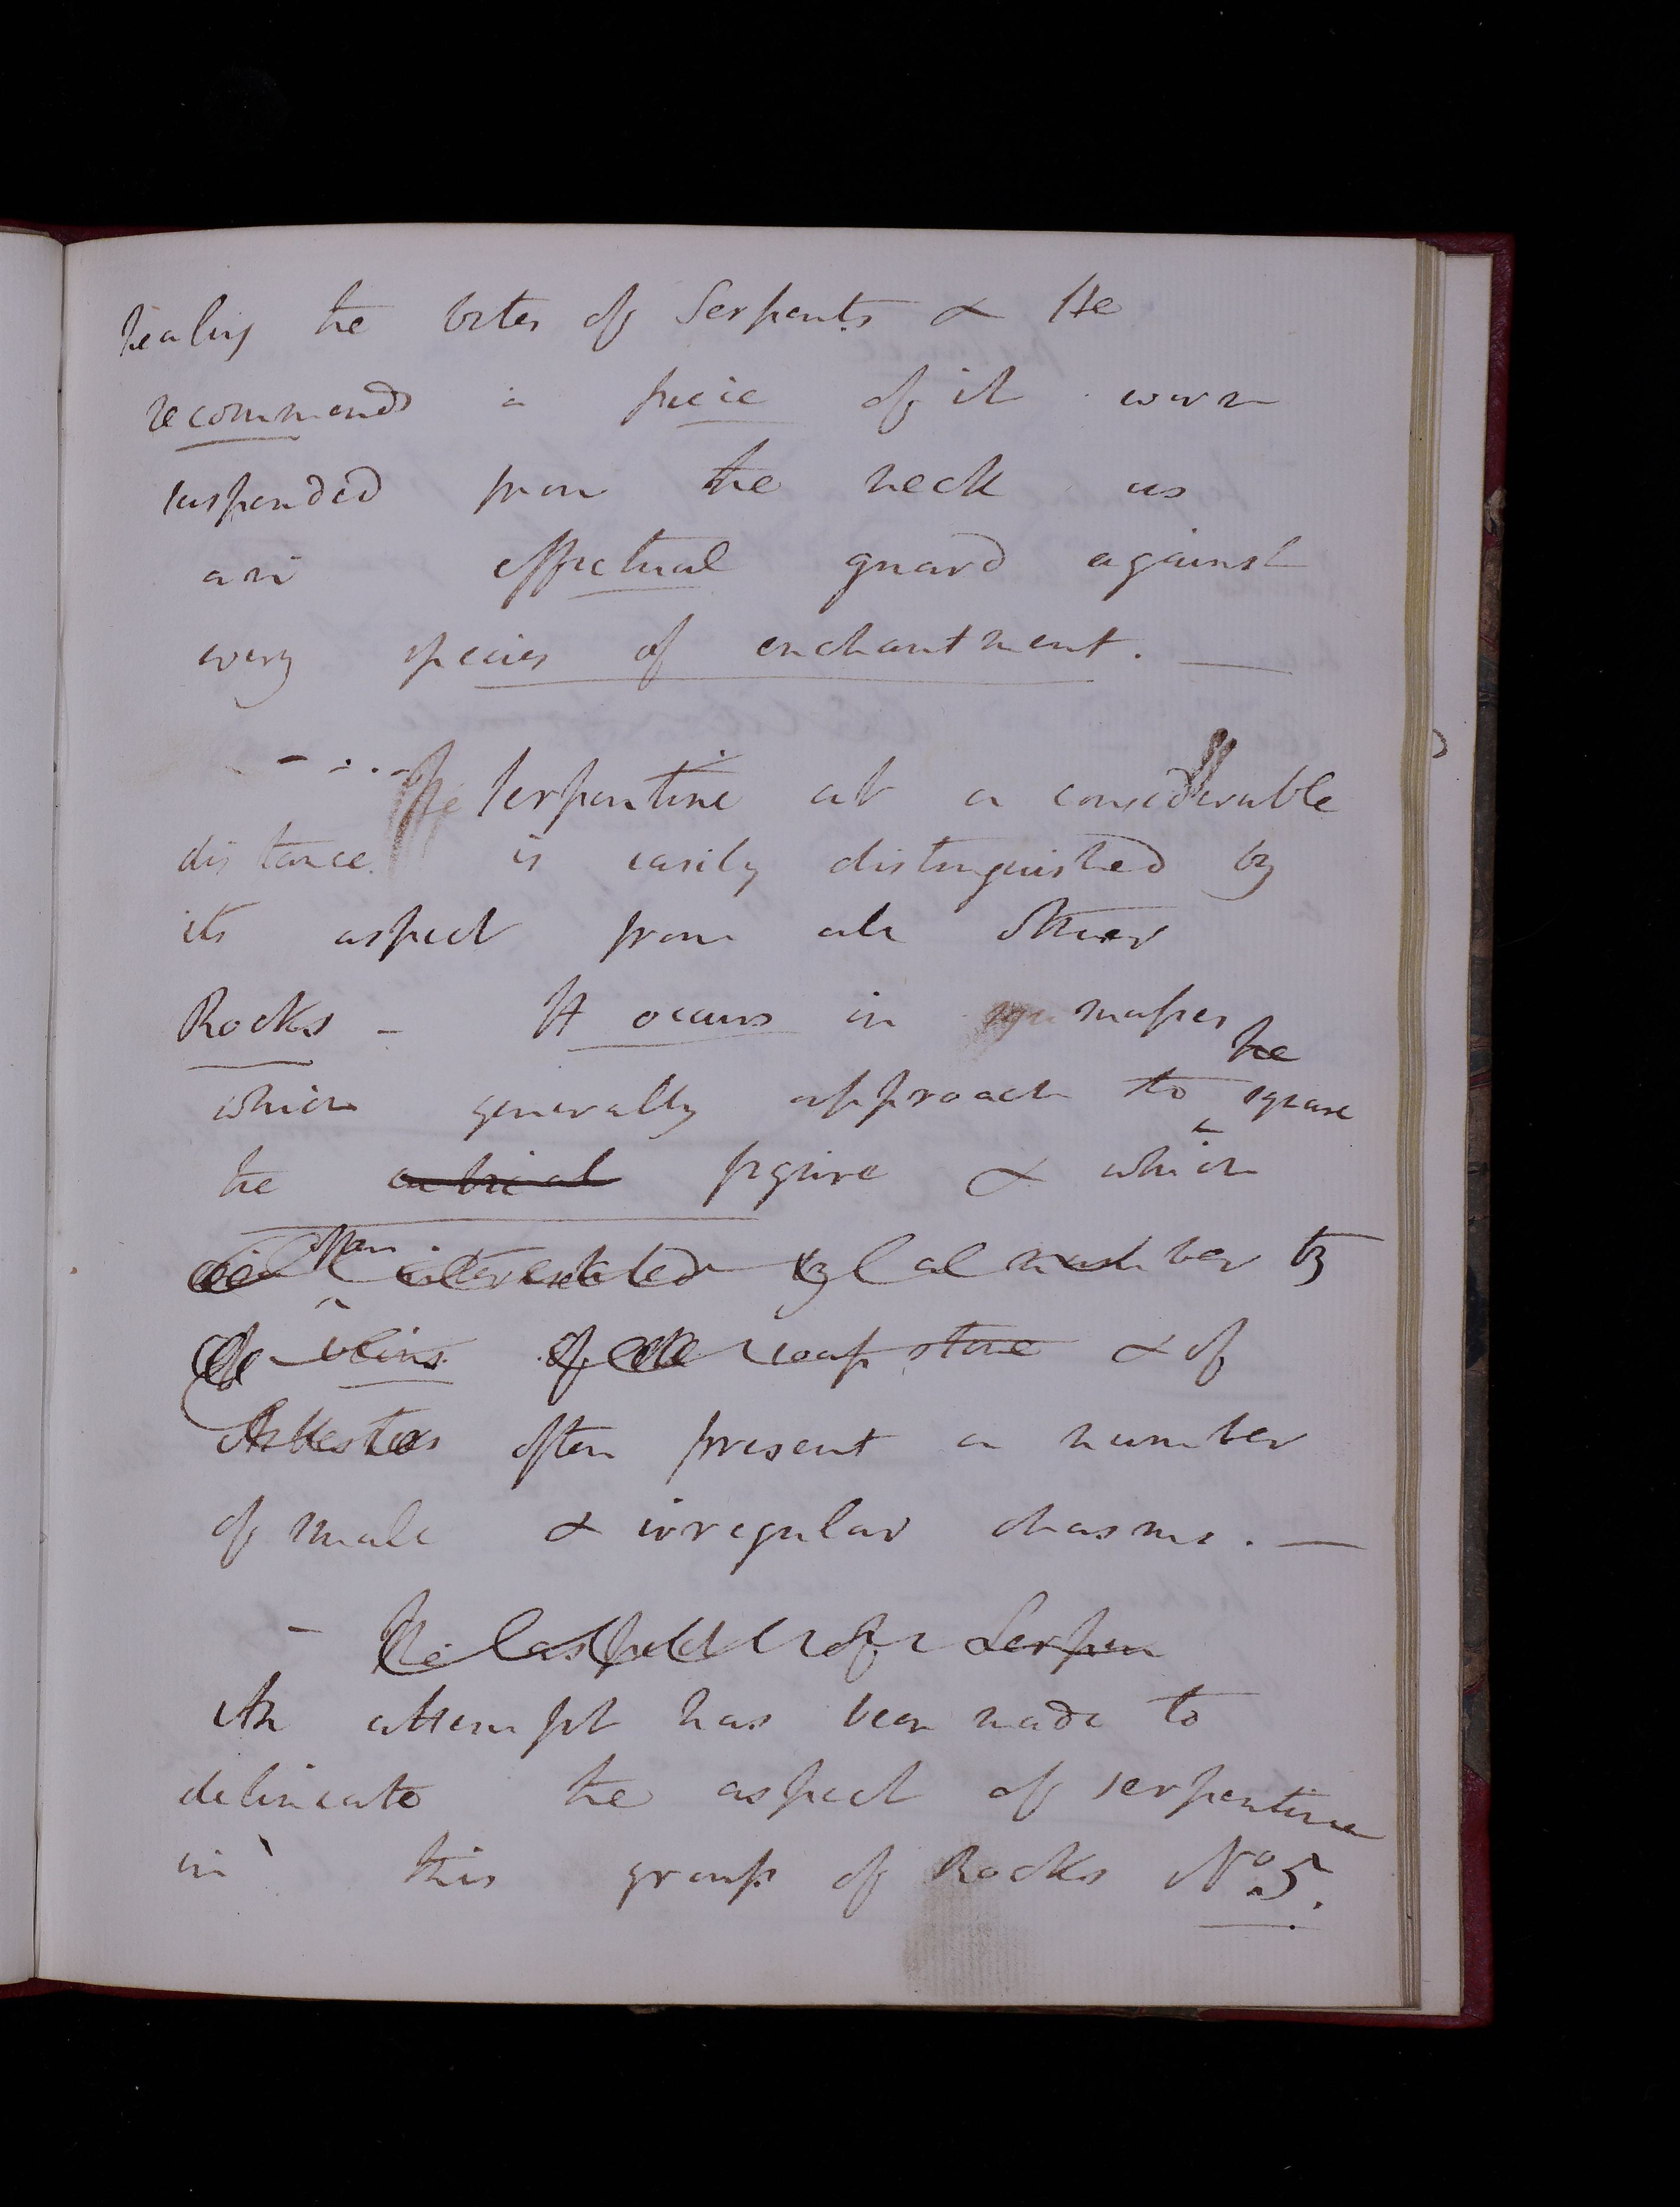 healing the bites of Serpents & He
recommends a peice of it worn
suspended from the neck as
an effectual guard against
every species of enchantment. —
- . . . - The Serpentine at a considerable
distance is easily distinguished by
its aspect from all other
Rocks - It occurs in masses
the
which generally approach to square
the cubical figure & which
often
intersected by
veins of soap stone & of
Asbestos often present a number
of small & irregular chasms. —
- The aspect of Serpen
An attempt has been made to
delineate the aspect of serpentine
in this group of Rocks No. 5.